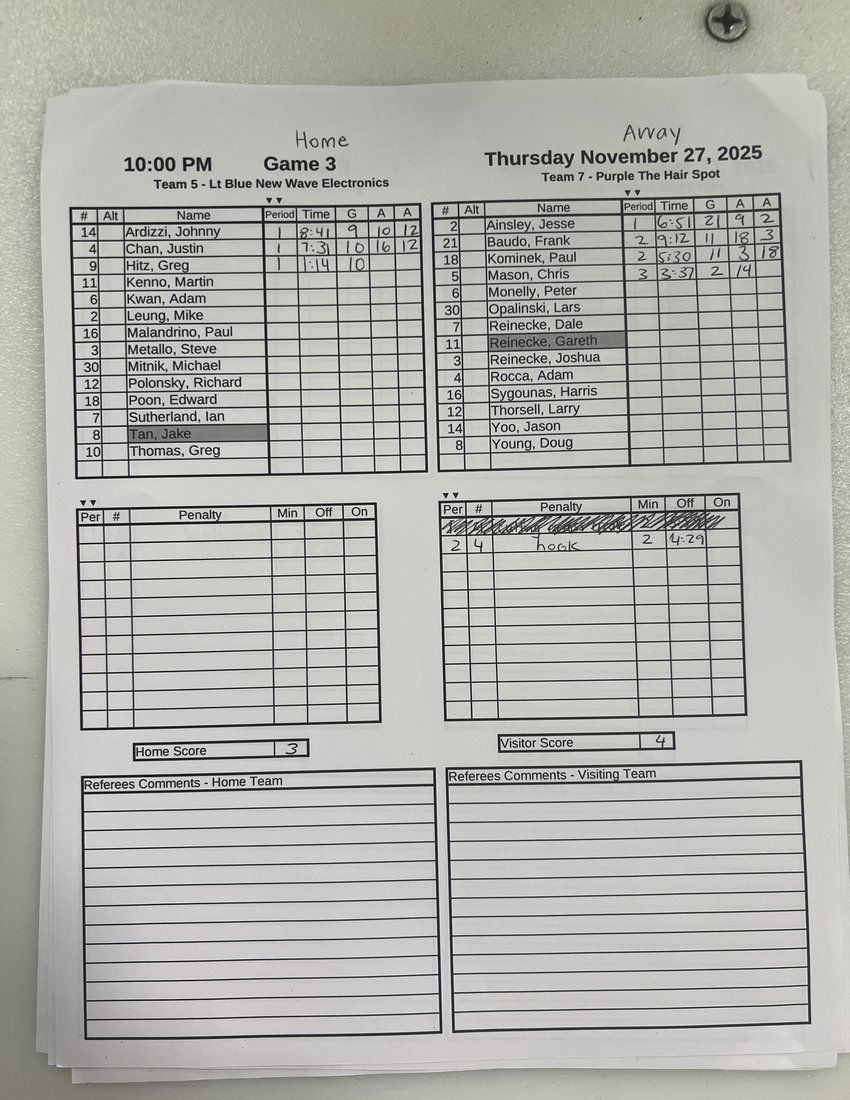 Home
Away
10:00 PM Game 3
Thursday November 27, 2025
Team 5 - Lt Blue New Wave Electronics
Team 7 - Purple The Hair Spot
# Alt Name Period Time G A A
14 Ardizzi, Johnny 1 8:41 9 10 12
4 Chan, Justin 1 7:31 10 16 12
9 Hitz, Greg 1 1:14 10
11 Kenno, Martin
6 Kwan, Adam
2 Leung, Mike
16 Malandrino, Paul
3 Metallo, Steve
30 Mitnik, Michael
12 Polonsky, Richard
18 Poon, Edward
7 Sutherland, Ian
8 Tan, Jake
10 Thomas, Greg
# Alt Name Period Time G A A
2 Ainsley, Jesse 1 6:51 21 9 2
21 Baudo, Frank 2 9:12 11 18 3
18 Kominek, Paul 2 5:30 11 3 18
5 Mason, Chris 3 3:37 2 14
6 Monelly, Peter
30 Opalinski, Lars
7 Reinecke, Dale
11 Reinecke, Gareth
3 Reinecke, Joshua
4 Rocca, Adam
16 Sygounas, Harris
12 Thorsell, Larry
14 Yoo, Jason
8 Young, Doug
Per # Penalty Min Off On
Per # Penalty Min Off On
2 4 hook 2 4:29
Home Score 3
Visitor Score 4
Referees Comments - Home Team
Referees Comments - Visiting Team